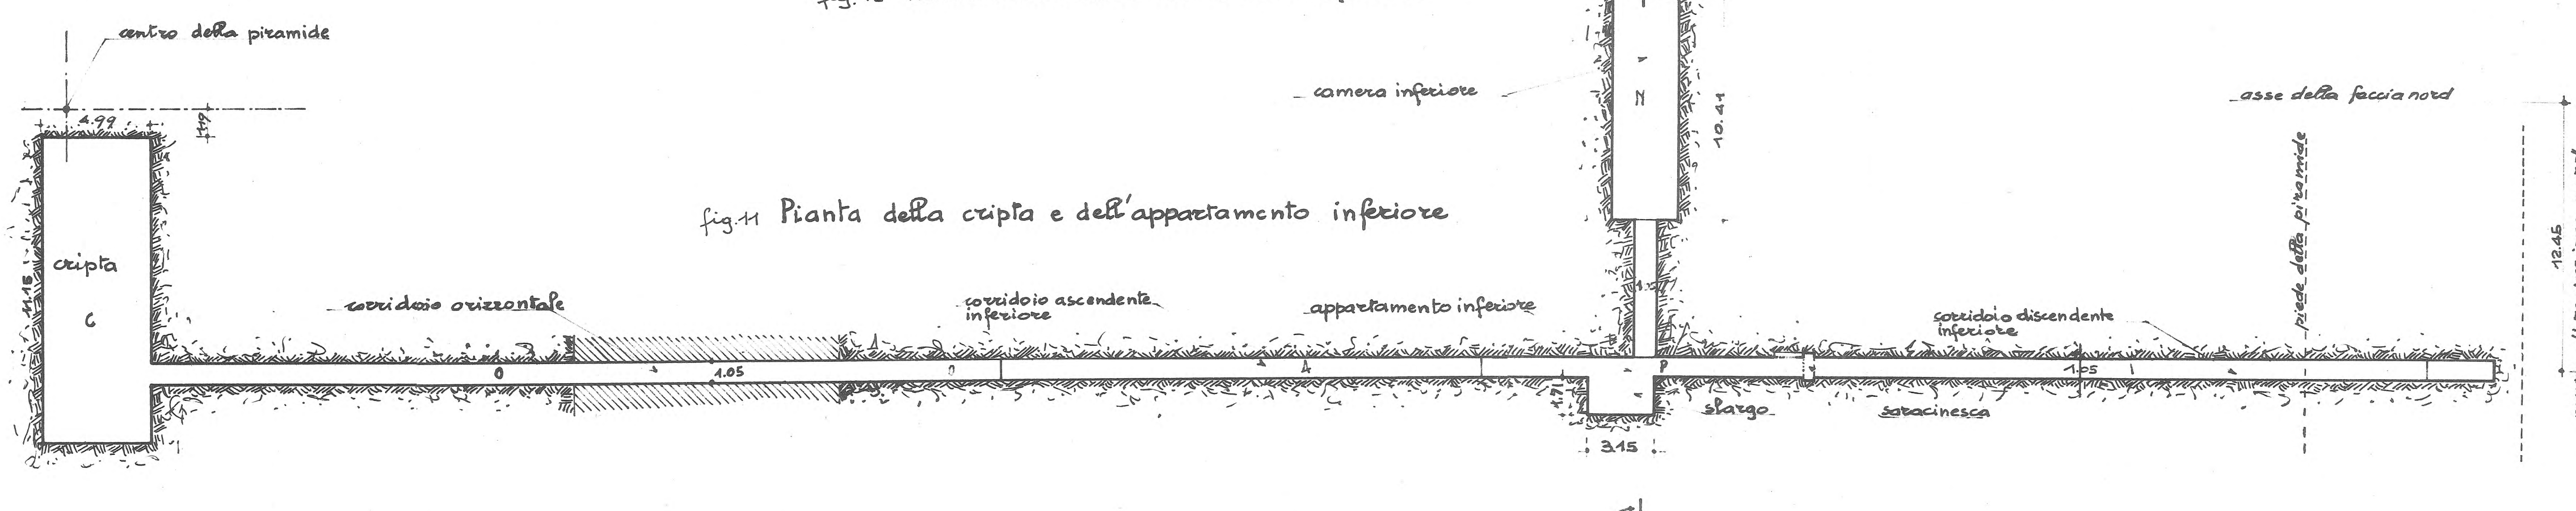 centro della piramide
4.99
1.19
camera inferiore
N
10.41
asse della faccia nord
piede della piramide
12.45
fig. 11 Pianta della cripta e dell'appartamento inferiore
cripta
C
11.15
corridoio orizzontale
corridoio ascendente
inferiore
appartamento inferiore
corridoio discendente
inferiore
O
1.05
A
P
1.05
slargo
saracinesca
3.15